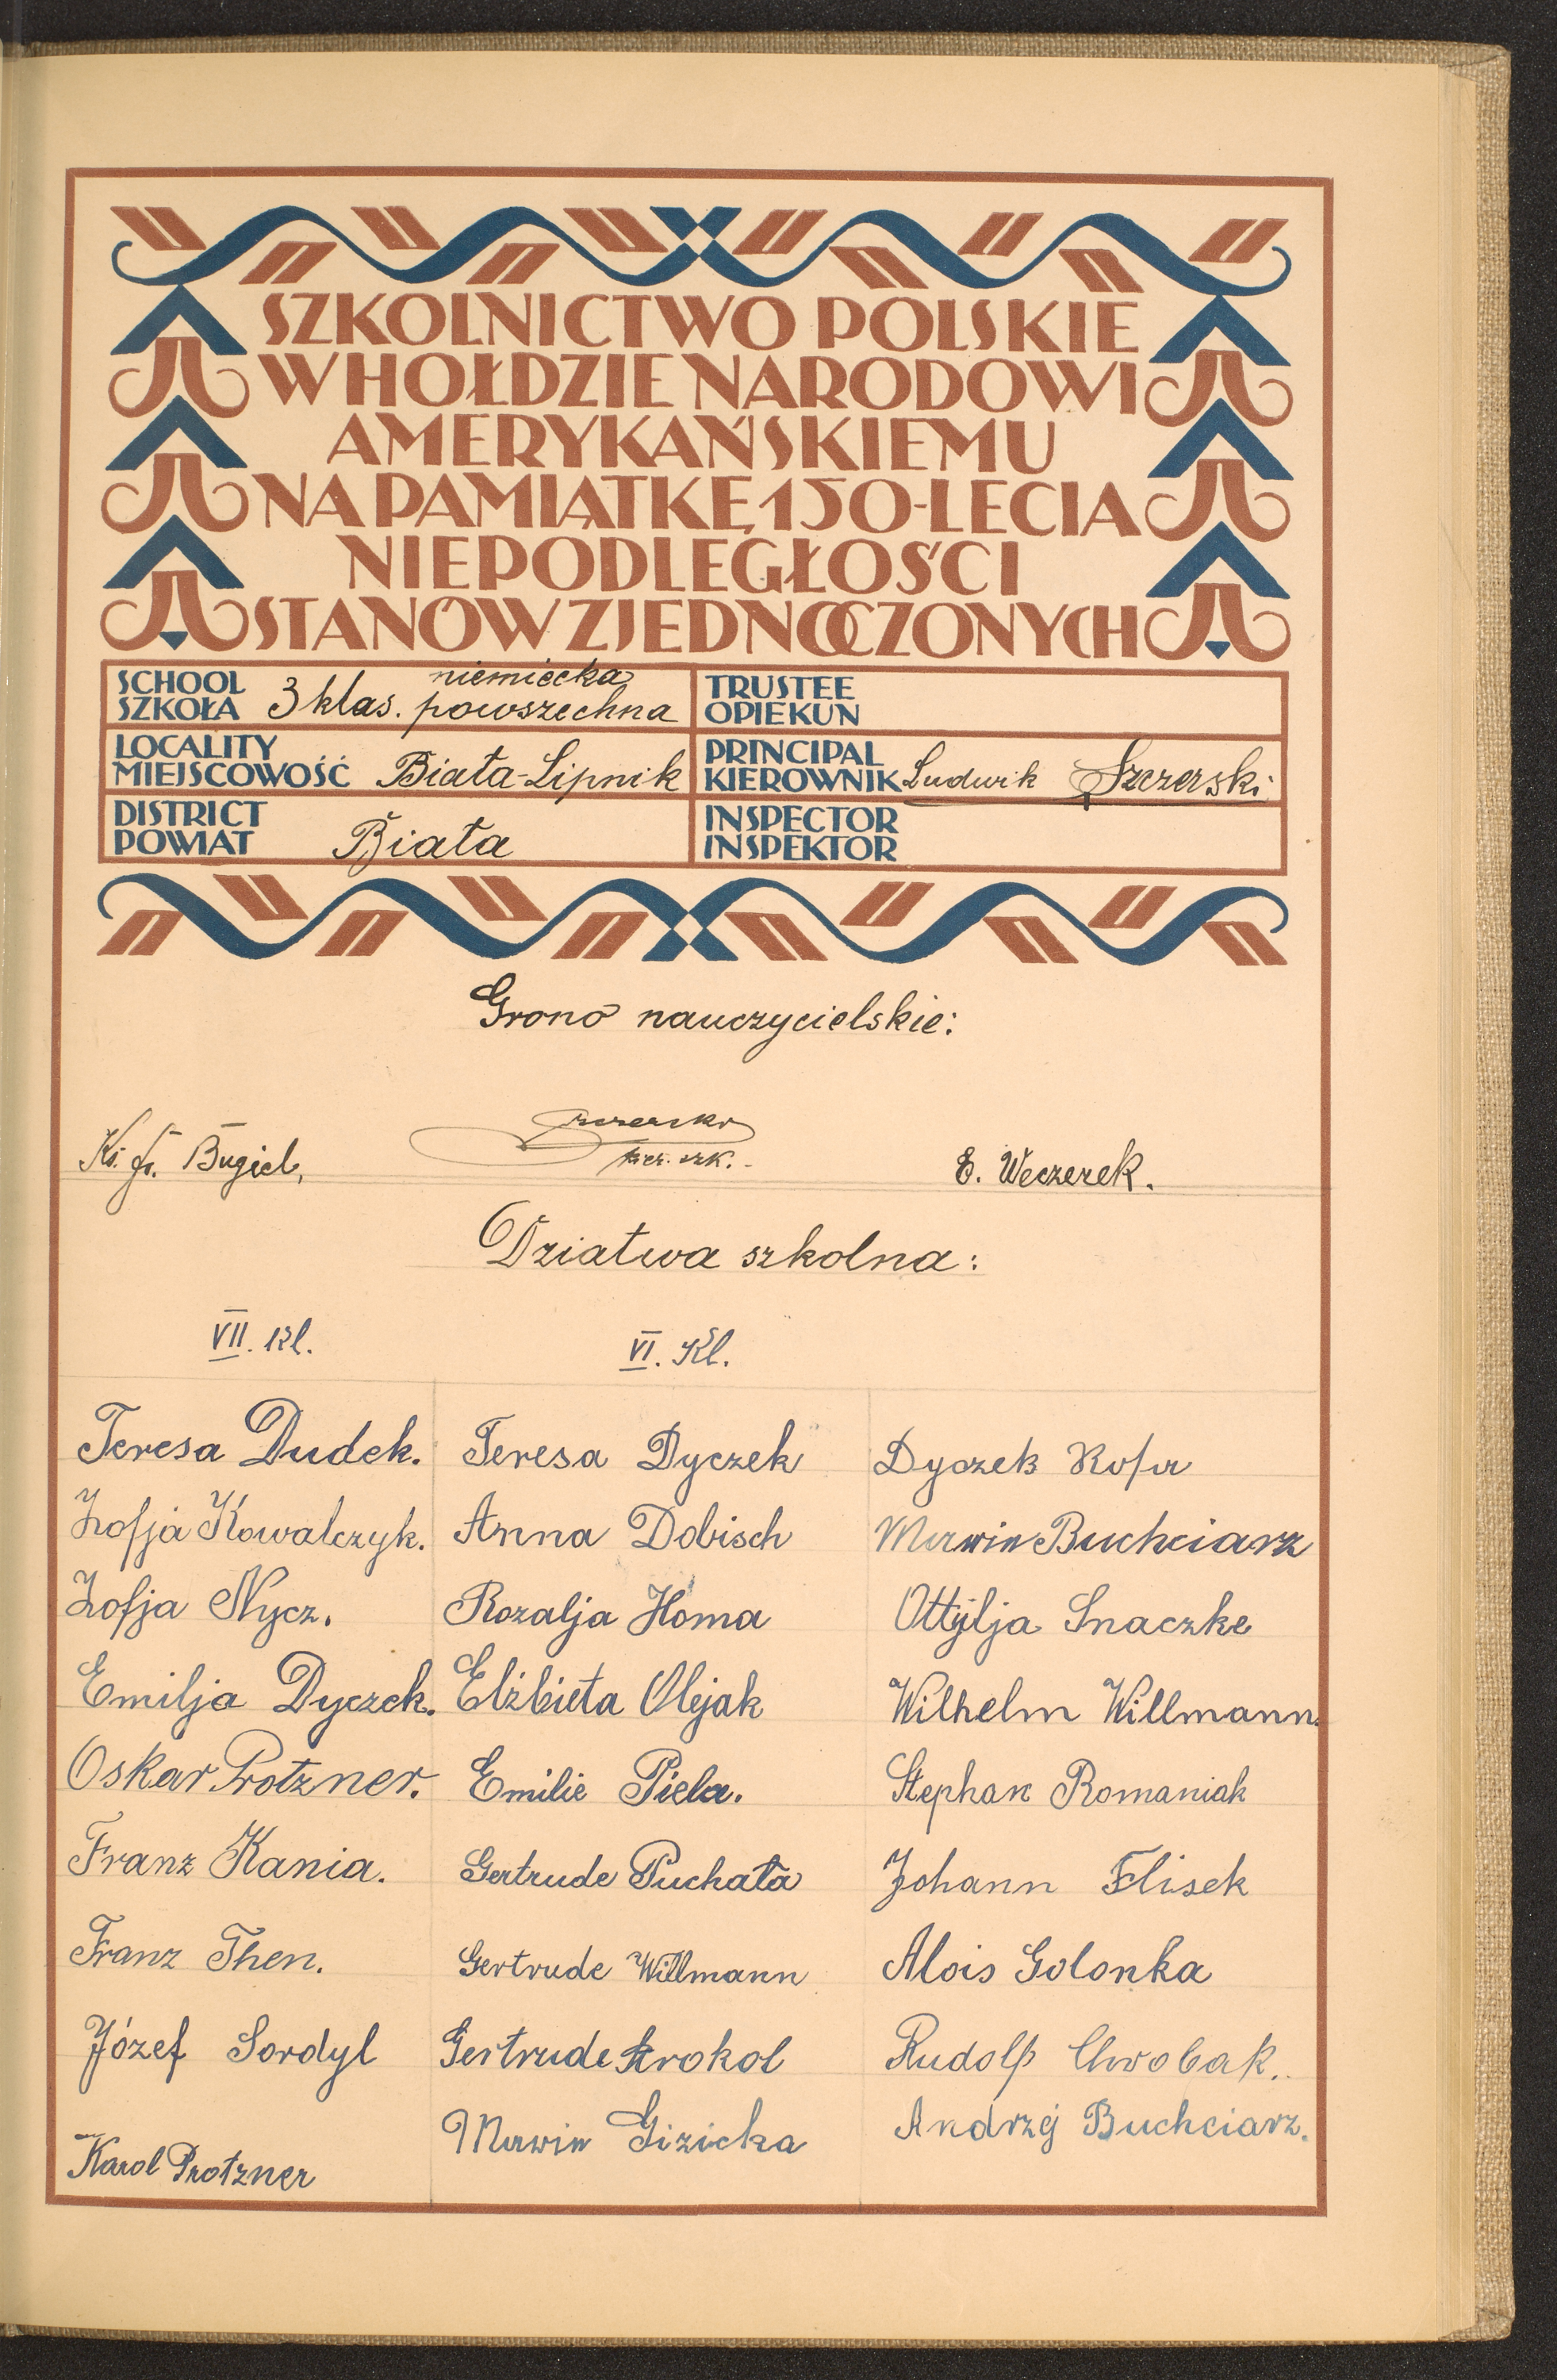 SZKOLNICTWO POLSKIE
W HOŁDZIE NARODOWI
AMERYKAŃSKIEMU
NA PAMIĄTKĘ 150-LECIA
NIEPODLEGŁOŚCI
STANÓW ZJEDNOCZONYCH
SCHOOL
SZKOŁA 3 klas. niemiecka powszechna
TRUSTEE
OPIEKUN
LOCALITY
MIEJSCOWOŚĆ Biała-Lipnik
PRINCIPAL
KIEROWNIK Ludwik Szczerski
DISTRICT
POWIAT Biała
INSPECTOR
INSPEKTOR
Grono nauczycielskie:
Ks. Fr. Bugiel,
kier. szk.
E. Weczerek.
Dziatwa szkolna:
VII. Kl.
Teresa Dudek.
Zofja Kowalczyk.
Zofja Nycz.
Emilja Dyczek.
Oskar Protzner.
Franz Kania.
Franz Then.
Józef Sordyl
Karol Protzner
VI. Kl.
Teresa Dyczek
Anna Dobisch
Rozalja Homa
Elżbieta Olejak
Emilie Piela.
Gertrude Puchała
Gertrude Willmann
Gertrude
Gizicka
Dyczek
Buchciarz
Ottylja Snaczke
Wilhelm Willmann.
Stephan Romaniak
Johann Flisek
Alois Golonka
Rudolf Chrobak.
Andrzej Buchciarz.